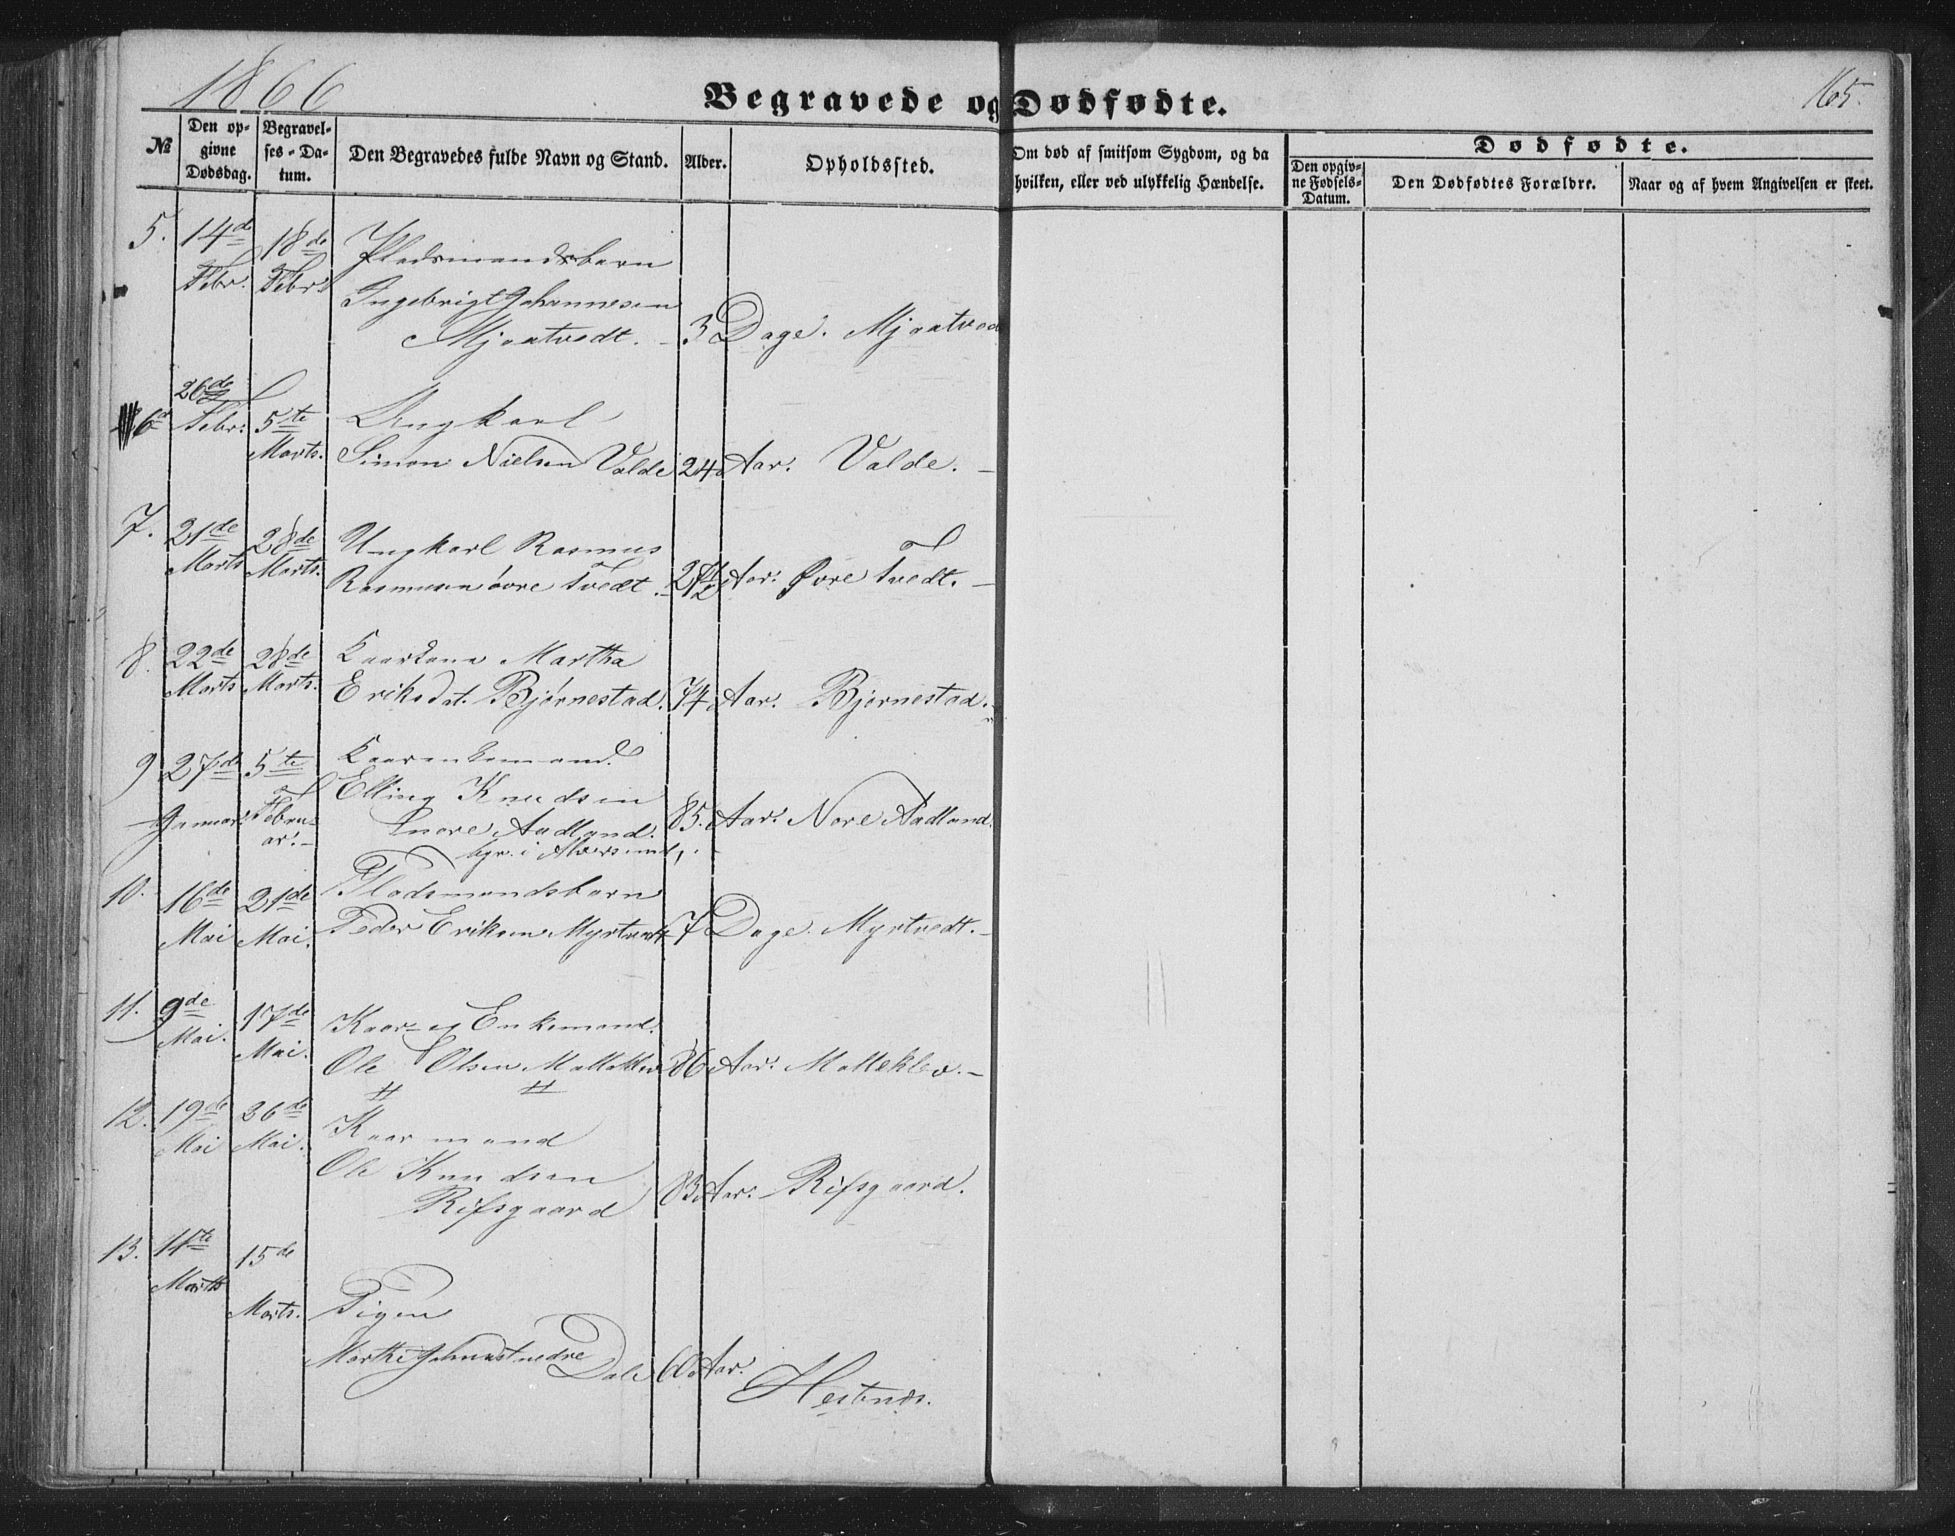 1866
Begravede og Dødfødte.
165.
№
Den opgivne Dødsdag.
Begravelses-Datum.
Den Begravedes fulde Navn og Stand.
Alder.
Opholdssted.
Om død af smitsom Sygdom, og da hvilken, eller ved ulykkelig Hændelse.
Dødfødte.
Den opgivne Fødsels-Datum.
Den Dødfødtes Forældre.
Naar og af hvem Angivelsen er skeet.
5. 14de Febr. 18de Febr. Pladsmandsbarn
Ingebrigt Johannesen
Mjaatvedt. 3 Dage. Mjaatved
6 26de Febr. 5te Marts. Ungkarl
Simon Nielsen Valde 24 Aar. Valde.
7. 21de Marts 28de Marts. Ungkarl Rasmus
Rasmusen øvre Tvedt. Aar. Øvre Tvedt.
8. 22de Marts 28de Marts. Kaarkone Martha
Eriksdat. Bjørnestad. 74 Aar. Bjørnestad.
9 27de Januar 5te Februar. Kaarenkemand.
Elling Knudsen
Aadland. 85. Aar. Nore Aadland.
bgr. i Alversund,
10. 16de Mai 21de Mai. Pladsmandsbarn
Peder Eriksen Myrtvedt 7 Dage. Myrtvedt.
11. 9de Mai. 17de Mai. Kaar- og Enkemand.
Ole Olsen Molleklev 86 Aar. Molleklev.
12. 19de Mai 26de Mai. Kaarmand
Ole Knudsen
Rifsgaard 83 Aar. Rifsgaard.
13. 11te Marts 15de Marts. Pigen
Marthe nedre Dale 60 Aar.
Hestnæs.